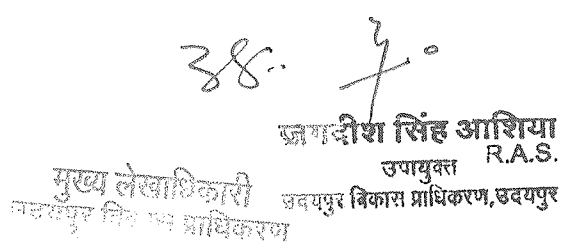 जगदीश सिंह आशिया
R.A.S.
उपायुक्त
उदयपुर विकास प्राधिकरण,उदयपुर
मुख्य लेखाधिकारी
उदयपुर विकास प्राधिकरण